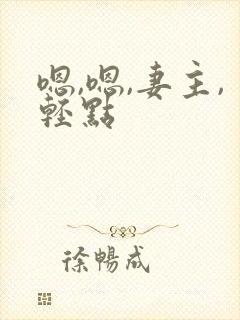 嗯,嗯,妻主,
輕點
徐暢成